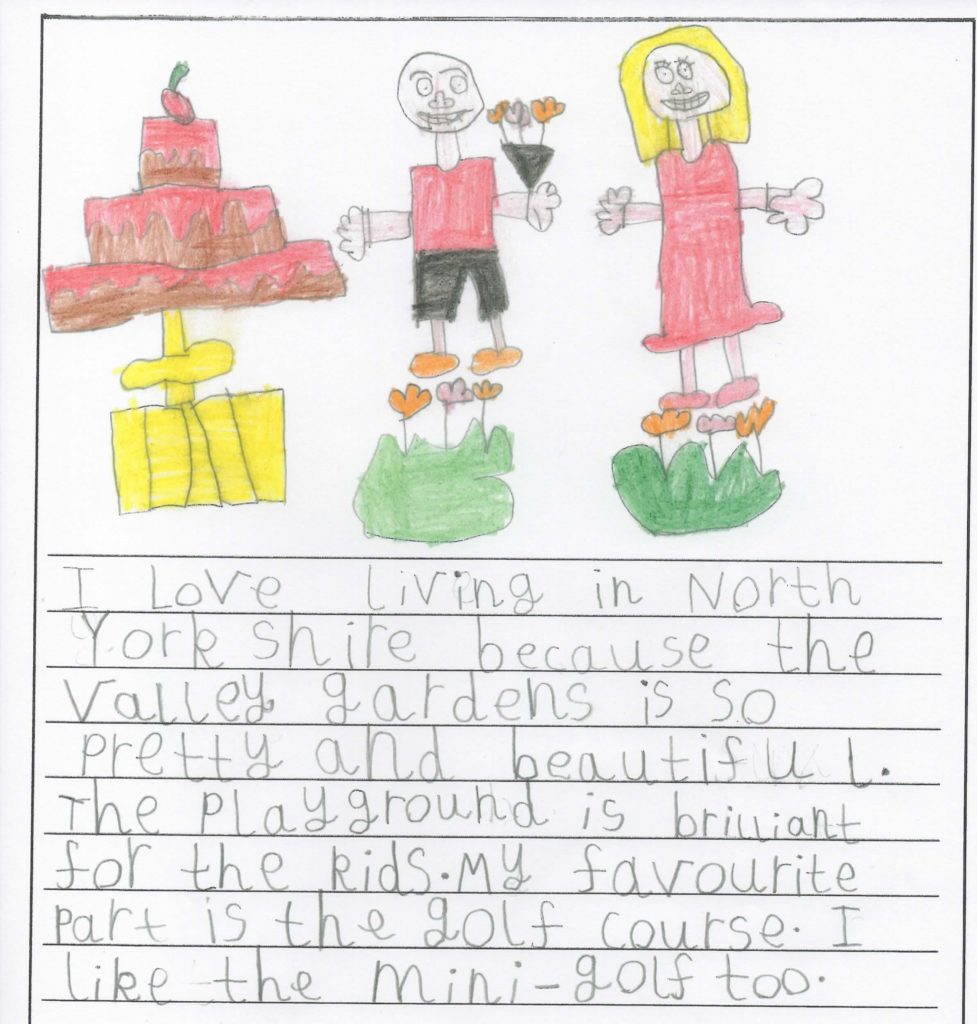 I Love living in North
York shire because the
valley gardens is so
pretty and beautiful.
The playground is brilliant
for the kids. My favourite
part is the golf course. I
like the mini-golf too.